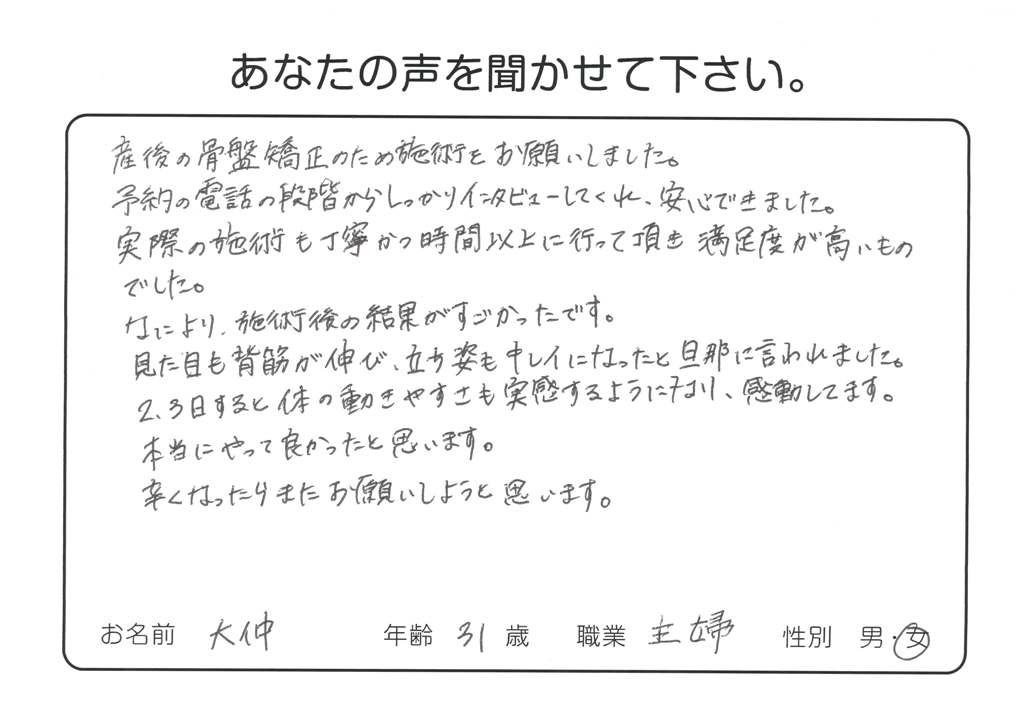 あなたの声を聞かせて下さい。
産後の骨盤矯正のため施術をお願いしました。
予約の電話の段階からしっかりインタビューしてくれ、安心できました。
実際の施術も丁寧かつ時間以上に行って頂き 満足度が高いもの
でした。
なにより、施術後の結果がすごかったです。
見た目も背筋が伸び、立ち姿もキレイになったと旦那に言われました。
2、3日すると体の動きやすさも実感するようになり、感動してます。
本当にやって良かったと思います。
辛くなったらまたお願いしようと思います。
お名前 大仲 年齢 31 歳 職業 主婦 性別 男・女